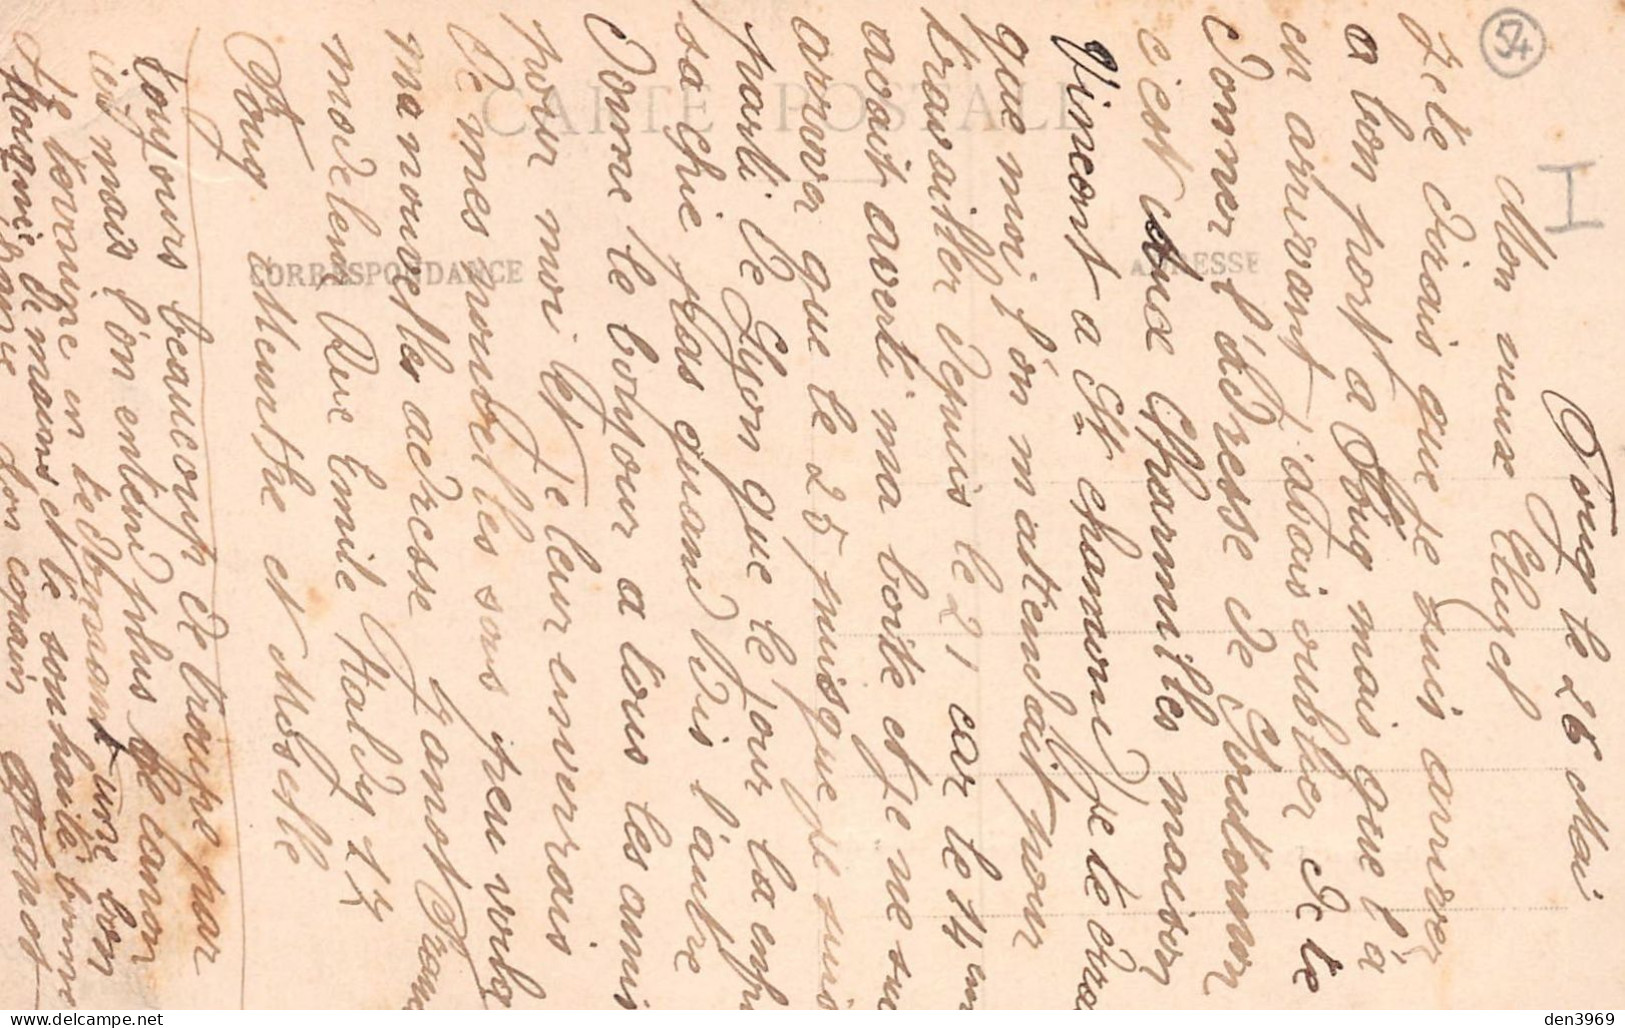 54
I
CARTE POSTALE
CORRESPONDANCE
ADRESSE
Foug le 26 Mai
Mon vieux
Je te dirais que je suis arriver
a bon port a Foug mais que l'a
en arrivant j'abais oublier de te
donner l'adresse de
c'est Charmilles maison
Vincent a St chamond je te
que moi l'on m'attendait pour
travailler depuis le 21 car le 14
avait averti ma boite et je ne
arriver que le 25 puisque je suis
parti de Lyon que le jour
sache pas quand dis l'autre
donne le bonjour a tous les amis
pour moi et je leur enverrais
de mes nouvelles sous peu
ma nouvelles adresse
modeleur Rue Emile Halvy 17
Foug Meurthe et Moselle
toujours beaucoup de troupe par
ici mais l'on entend plus le canon
je termine en te bon
poignée de mains et te souhaite bonne
ton copain
den3969